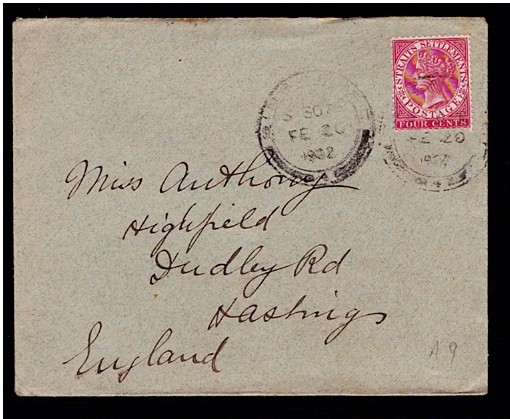 STRAITS SETTLEMENTS
POSTAGE
FOUR CENTS
FE 20
1902
FE 20
Miss Anthony
Highfield
Dudley Rd
Hastings
England
A 9